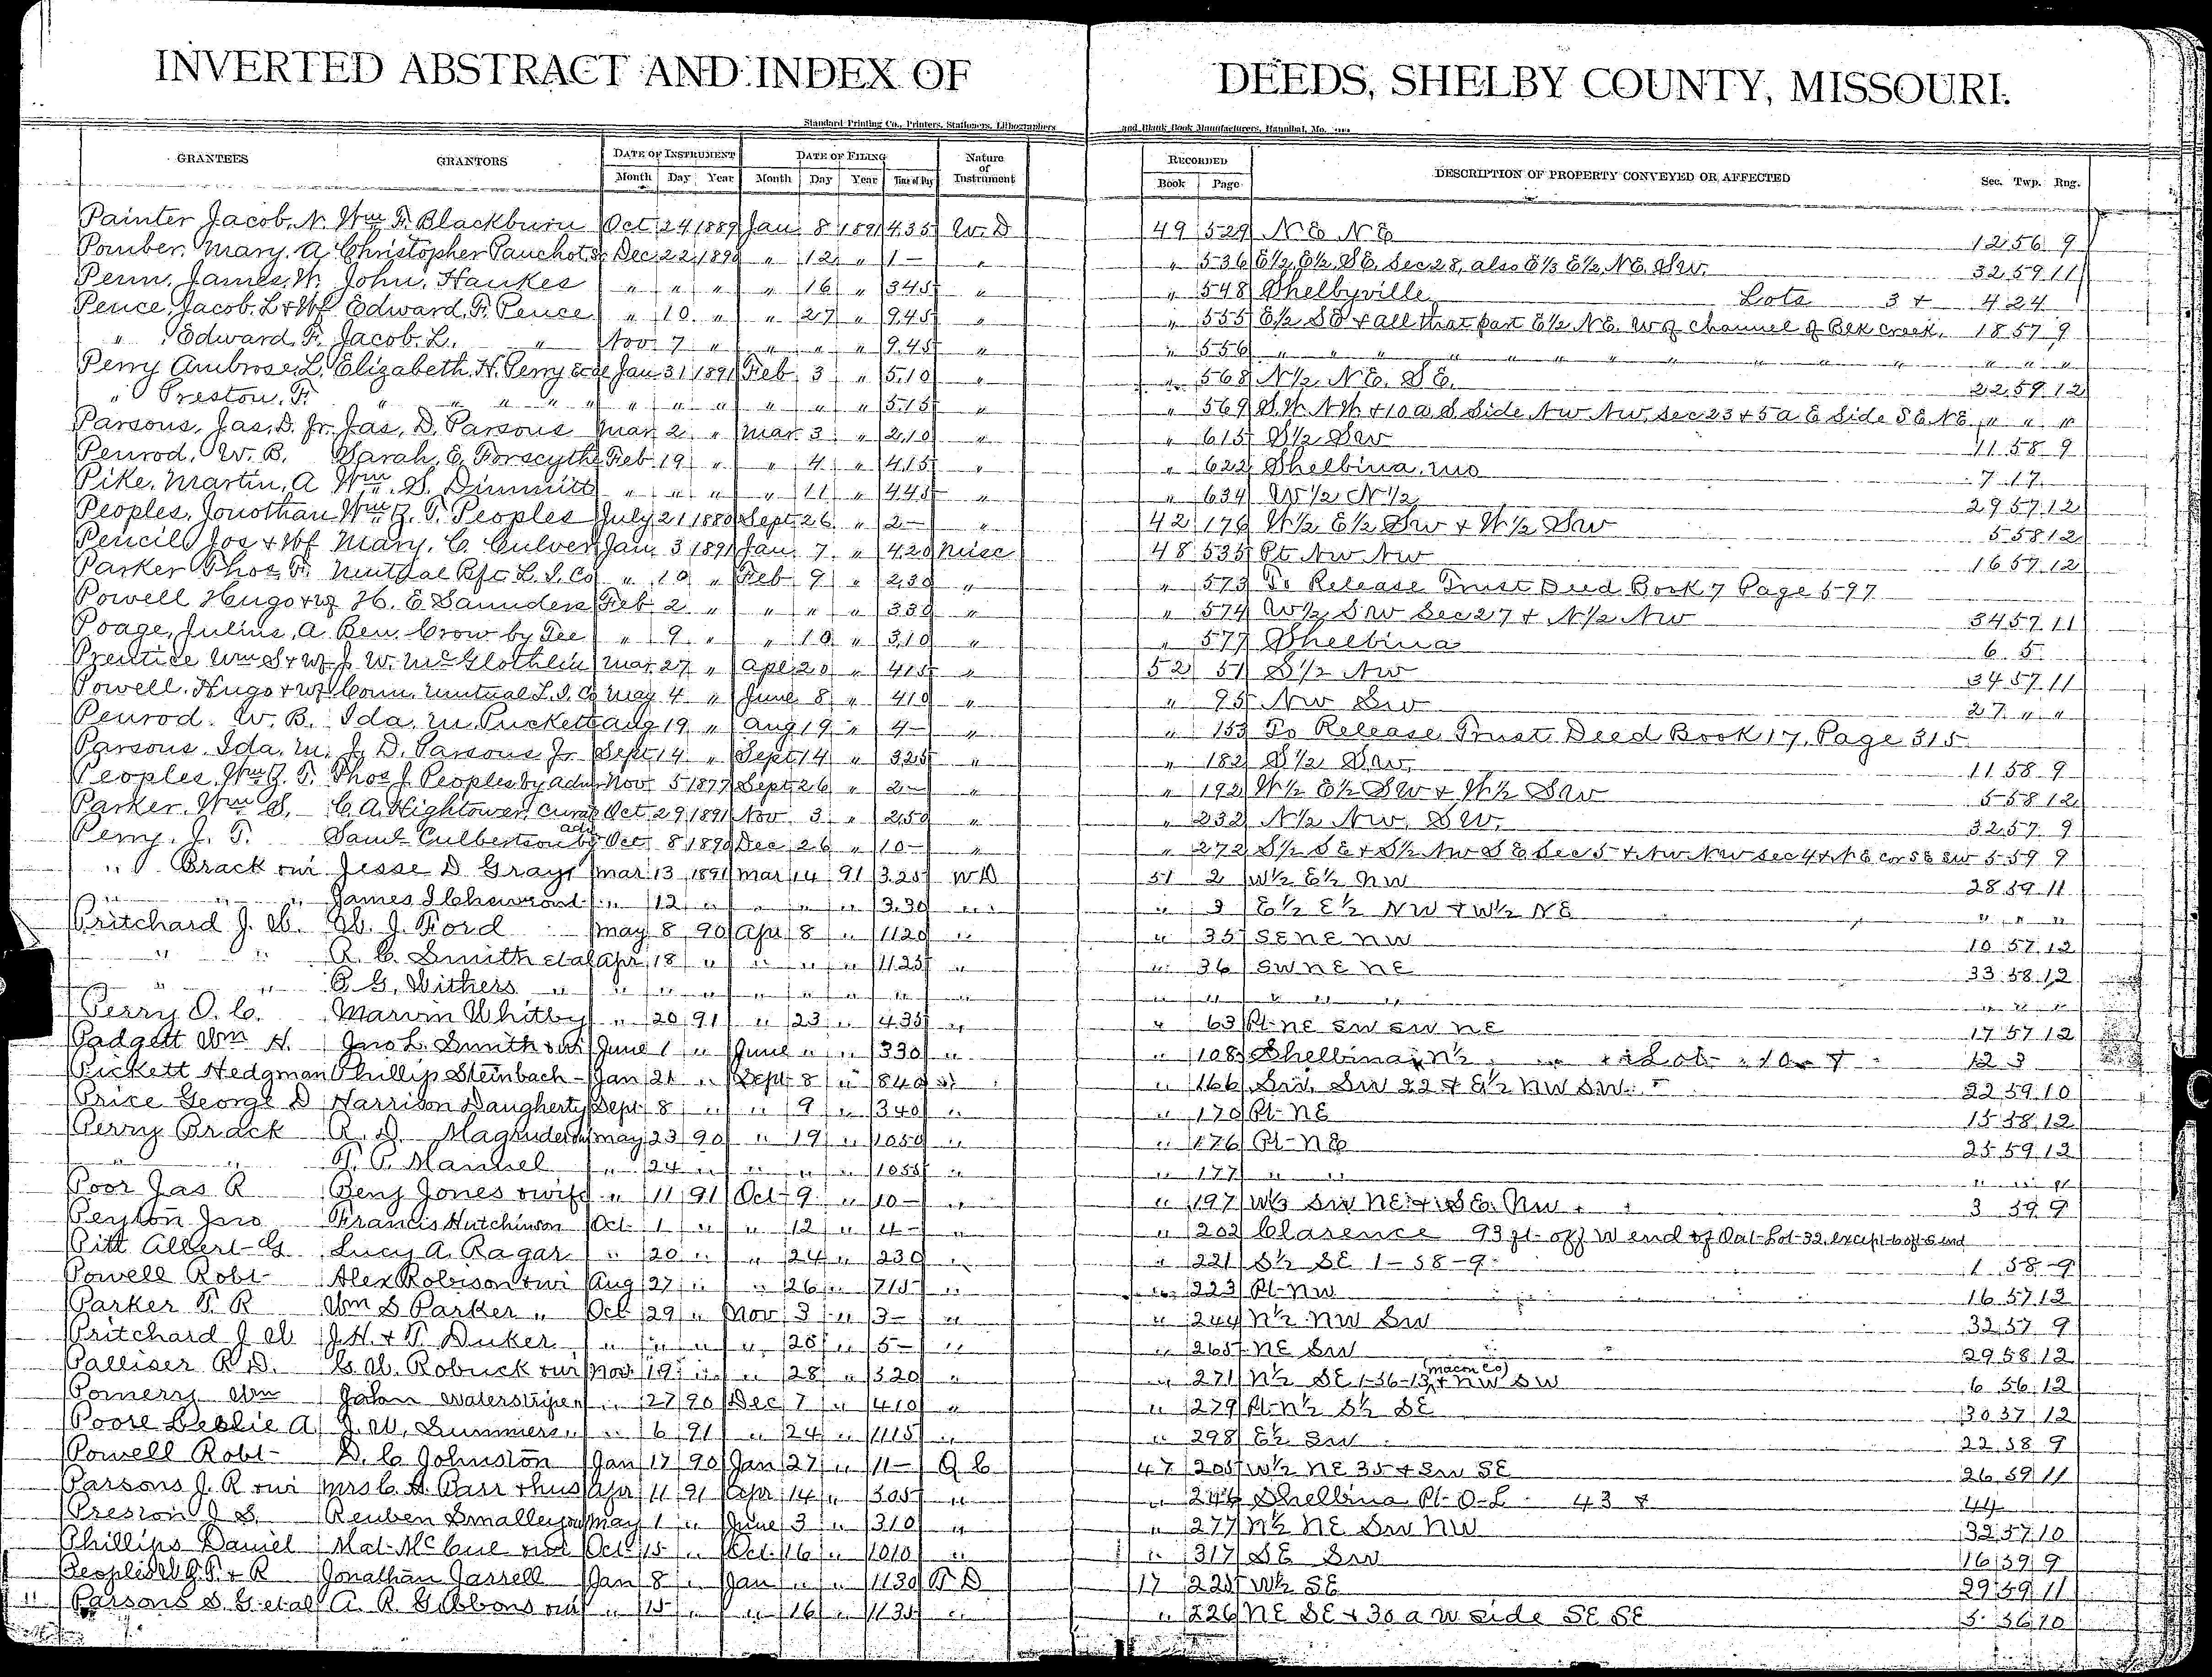 INVERTED ABSTRACT AND INDEX OF DEEDS, SHELBY COUNTY, MISSOURI.
Standard Printing Co., Printers, Stationers, Lithographers and Blank Book Manufacturers, Hannibal, Mo.
GRANTEES GRANTORS DATE OF INSTRUMENT DATE OF FILING Nature of Instrument RECORDED DESCRIPTION OF PROPERTY CONVEYED OR AFFECTED Sec. Twp. Rng.
Month Day Year Month Day Year Time of Day Book Page
Painter Jacob. N. Wm F. Blackburn Oct 24 1889 Jan 8 1891 4.35 W. D 49 529 N E N E 12 56 9
Pomber. Mary. A Christopher Pauchot Dec 22 1890 " 12 " 1- " " 536 E½ E½ S E. Sec 28, also E⅓ E½ N E. S W. 32 59 11
Penn, James. W. John. Hawkes " " " " 16 " 3.45 " " 548 Shelbyville Lots 3 + 4 24
Pence, Jacob. L + Wf Edward. F. Pence " 10 " " 27 " 9.45 " " 555 E½ S E + all that part E½ N E. W of channel of Blk creek. 18 57 9
" Edward. F. Jacob. L. " Nov 7 " " " " 9.45 " " 556 " " " " " " " " " " " "
Perry Ambrose. L. Elizabeth. H. Perry Jan 31 1891 Feb 3 " 5.10 " " 568 N½ N E. S E. 22 59 12
" Preston. F. " " " " " " " " " " 5.15 " " 569 S W N W + 10 a S Side N W N W. Sec 23 + 5 a E Side S E N E " " "
Parsons, Jas. D. Jr. Jas. D. Parsons Mar 2 " Mar 3 " 2.10 " " 615 S½ S W 11 58 9
Penrod. W. B. Sarah. E. Forscythe Feb 19 " " 4 " 4.15 " " 622 Shelbina. Mo 7 17
Pike. Martin. A Wm. S. Dimmitt " " " " 11 " 4.45 " " 634 W½ N½ 29 57 12
Peoples. Jonothan Wm B. T. Peoples July 21 1880 Sept 26 " 2- " 42 176 W½ E½ S W + W½ S W 5 58 12
Pencil Jos + Wf Mary. C. Culver Jan. 3 1891 Jan. 7 " 4.20 Misc 48 535 Pt N W N W 16 57 12
Parker Thos. F. Mutual Bft L. I. Co " 10 " Feb 9 " 2.30 " " 573 To Release Trust Deed Book 7 Page 597
Powell Hugo + wf H. E. Saunders Feb 2 " " " " 3.30 " " 574 W½ S W Sec 27 + N½ N W 34 57 11
Poage, Julius, A Ben. Crow by Tee " 9 " " 10 " 3.10 " " 577 Shelbina 6 5
Prentice Wm S + Wf J. W. McGlothlin Mar. 27 " Apl 20 " 4.15 " 52 51 S½ N W 34 57 11
Powell. Hugo + wf Conn. Mutual L. I. Co May 4 " June 8 " 4.10 " " 95 N W S W 27 " "
Penrod. W. B. Ida. M. Puckett Aug 19 " Aug 19 " 4- " " 153 To Release Trust Deed Book 17, Page 315
Parsons. Ida. M. J. D. Parsons Jr Sept 14 " Sept 14 " 3.25 " " 182 S½ S W. 11 58 9
Peoples, Wm B. T. Thos J. Peoples by adm Nov 5 1877 Sept 26 " 2- " " 192 W½ E½ S W + W½ S W 5 58 12
Parker. Wm S. C. A. Hightower, Oct 29 1891 Nov. 3 " 2.50 " " 232 N½ N W. S W. 32 57 9
Perry. J. T. Saml Culbertson by adm Oct 8 1890 Dec 26 " 10- " " 272 S½ S E + S½ N W S E Sec 5 + N W N W sec 4 + N E cor S E S W 5 59 9
" Brack & wi Jesse D Gray Mar 13 1891 Mar 14 91 3.25 W D 51 2 W½ E½ N W 28 59 11
" " " James I " 12 " " " " 3.30 " " 3 E½ E½ N W + W½ N E " " "
Pritchard J. W. W. J. Ford May 8 90 Apr 8 " 11 20 " " 35 S E N E N W 10 57 12
" " R. C. Smith et al Apr 18 " " " " 11 25 " " 36 S W N E N E 33 58 12
" " P. G. Withers " " " " " " " " " " " " " " " "
Perry O. C. Marvin Whitby " 20 91 " 23 " 4 35 " " 63 Pt N E S W S W N E 17 57 12
Padgett Wm H. Jno L. Smith & wi June 1 " June " " 3 30 " " 108 Shelbina N½ 12 3
Pickett Hedgman Phillip Steinbach Jan 21 " Sept 8 " 8 40 " " 166 S W. S W 22 + E½ N W S W 22 59 10
Price George D Harrison Daugherty Sept 8 " " 9 " 3 40 " " 170 Pt N E 15 58 12
Perry Brack R. D. Magruder May 23 90 " 19 " 10 50 " " 176 Pt N E 25 59 12
" " T. P. Manuel " 24 " " " " 10 55 " " 177 " " " " "
Poor Jas R Benj Jones & wife " 11 91 Oct 9 " 10- " " 197 W½ S W N E + S E. N W 3 59 9
Peyton Jno Francis Hutchinson Oct 1 " " 12 " 4- " " 202 Clarence 93 ft off W end of Out Lot 32, except 6 of S end
Pitt Albert G Lucy A. Ragar " 20 " " 24 " 2 30 " " 221 S½ S E 1-58-9 1 58 9
Powell Robt Alex Robison & wi Aug 27 " " 26 " 7 15 " " 223 Pt N W 16 57 12
Parker T. R Wm S Parker " Oct 29 " Nov 3 " 3- " " 244 N½ N W S W 32 57 9
Pritchard J W J. H. + T. Duker " " " " 25 " 5- " " 265 N E S W 29 58 12
Palliser R D. C. W. Robuck & wi Nov 19 " " 28 " 3 20 " " 271 N½ S E 1-56-13 (Macon Co) + N W S W 6 56 12
Pomerry Wm John Waterstriper " 27 90 Dec 7 " 4 10 " " 279 Pt N½ S½ S E 30 57 12
Poore Leslie A J. W. Summers " " 6 91 " 24 " 11 15 " " 298 E½ S W 22 58 9
Powell Robt D. C Johnston Jan 17 90 Jan 27 " 11- Q C 47 205 W½ N E 35 + S W S E 26 59 11
Parsons J. R & wi Mrs C. A. Parr & hus Apr 11 91 Apr 14 " 3 05 " " 246 Shelbina Pt O-L 43 + 44
Preston J S. Reuben Smalley May 1 " June 3 " 3 10 " " 277 N½ N E S W N W 32 57 10
Phillips Daniel Mat McCue & wi Oct 15 " Oct 16 " 10 10 " " 317 S E S W 16 59 9
Peoples W B. T. + R Jonathan Jarrell Jan 8 " Jan " " 11 30 T D 17 225 W½ S E 29 59 11
" Parsons S. G. et al A. R. Gibbons & wi " 15 " " 16 " 11 35 " " 226 N E S E + 30 a W side S E S E 5 56 10